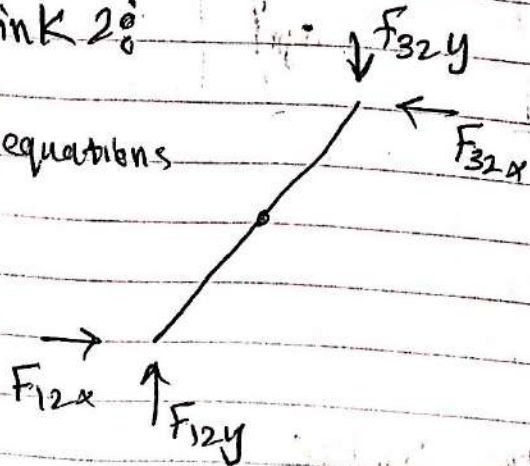 ink 2:
f32y
equations
F32x
F12x
F12y